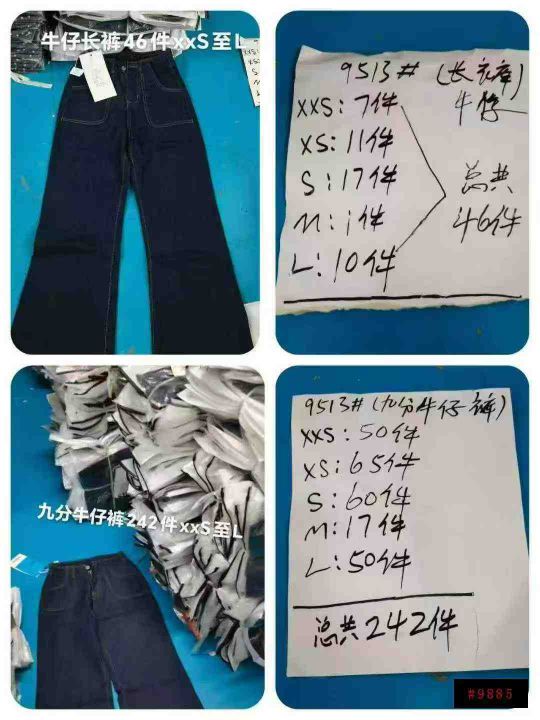 牛仔长裤46件xxS至L
9513#(长裤)
牛仔
XXS:7件
XS:11件
S:17件
M:1件
L:10件
总共
46件
九分牛仔裤242件xxS至L
9513#(九分牛仔裤)
XXS:50件
XS:65件
S:60件
M:17件
L:50件
总共242件
#9885